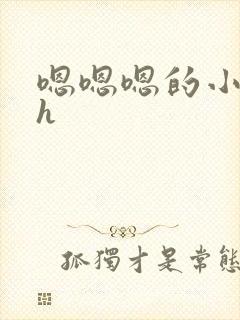 嗯嗯嗯的小
h
孤獨才是常態